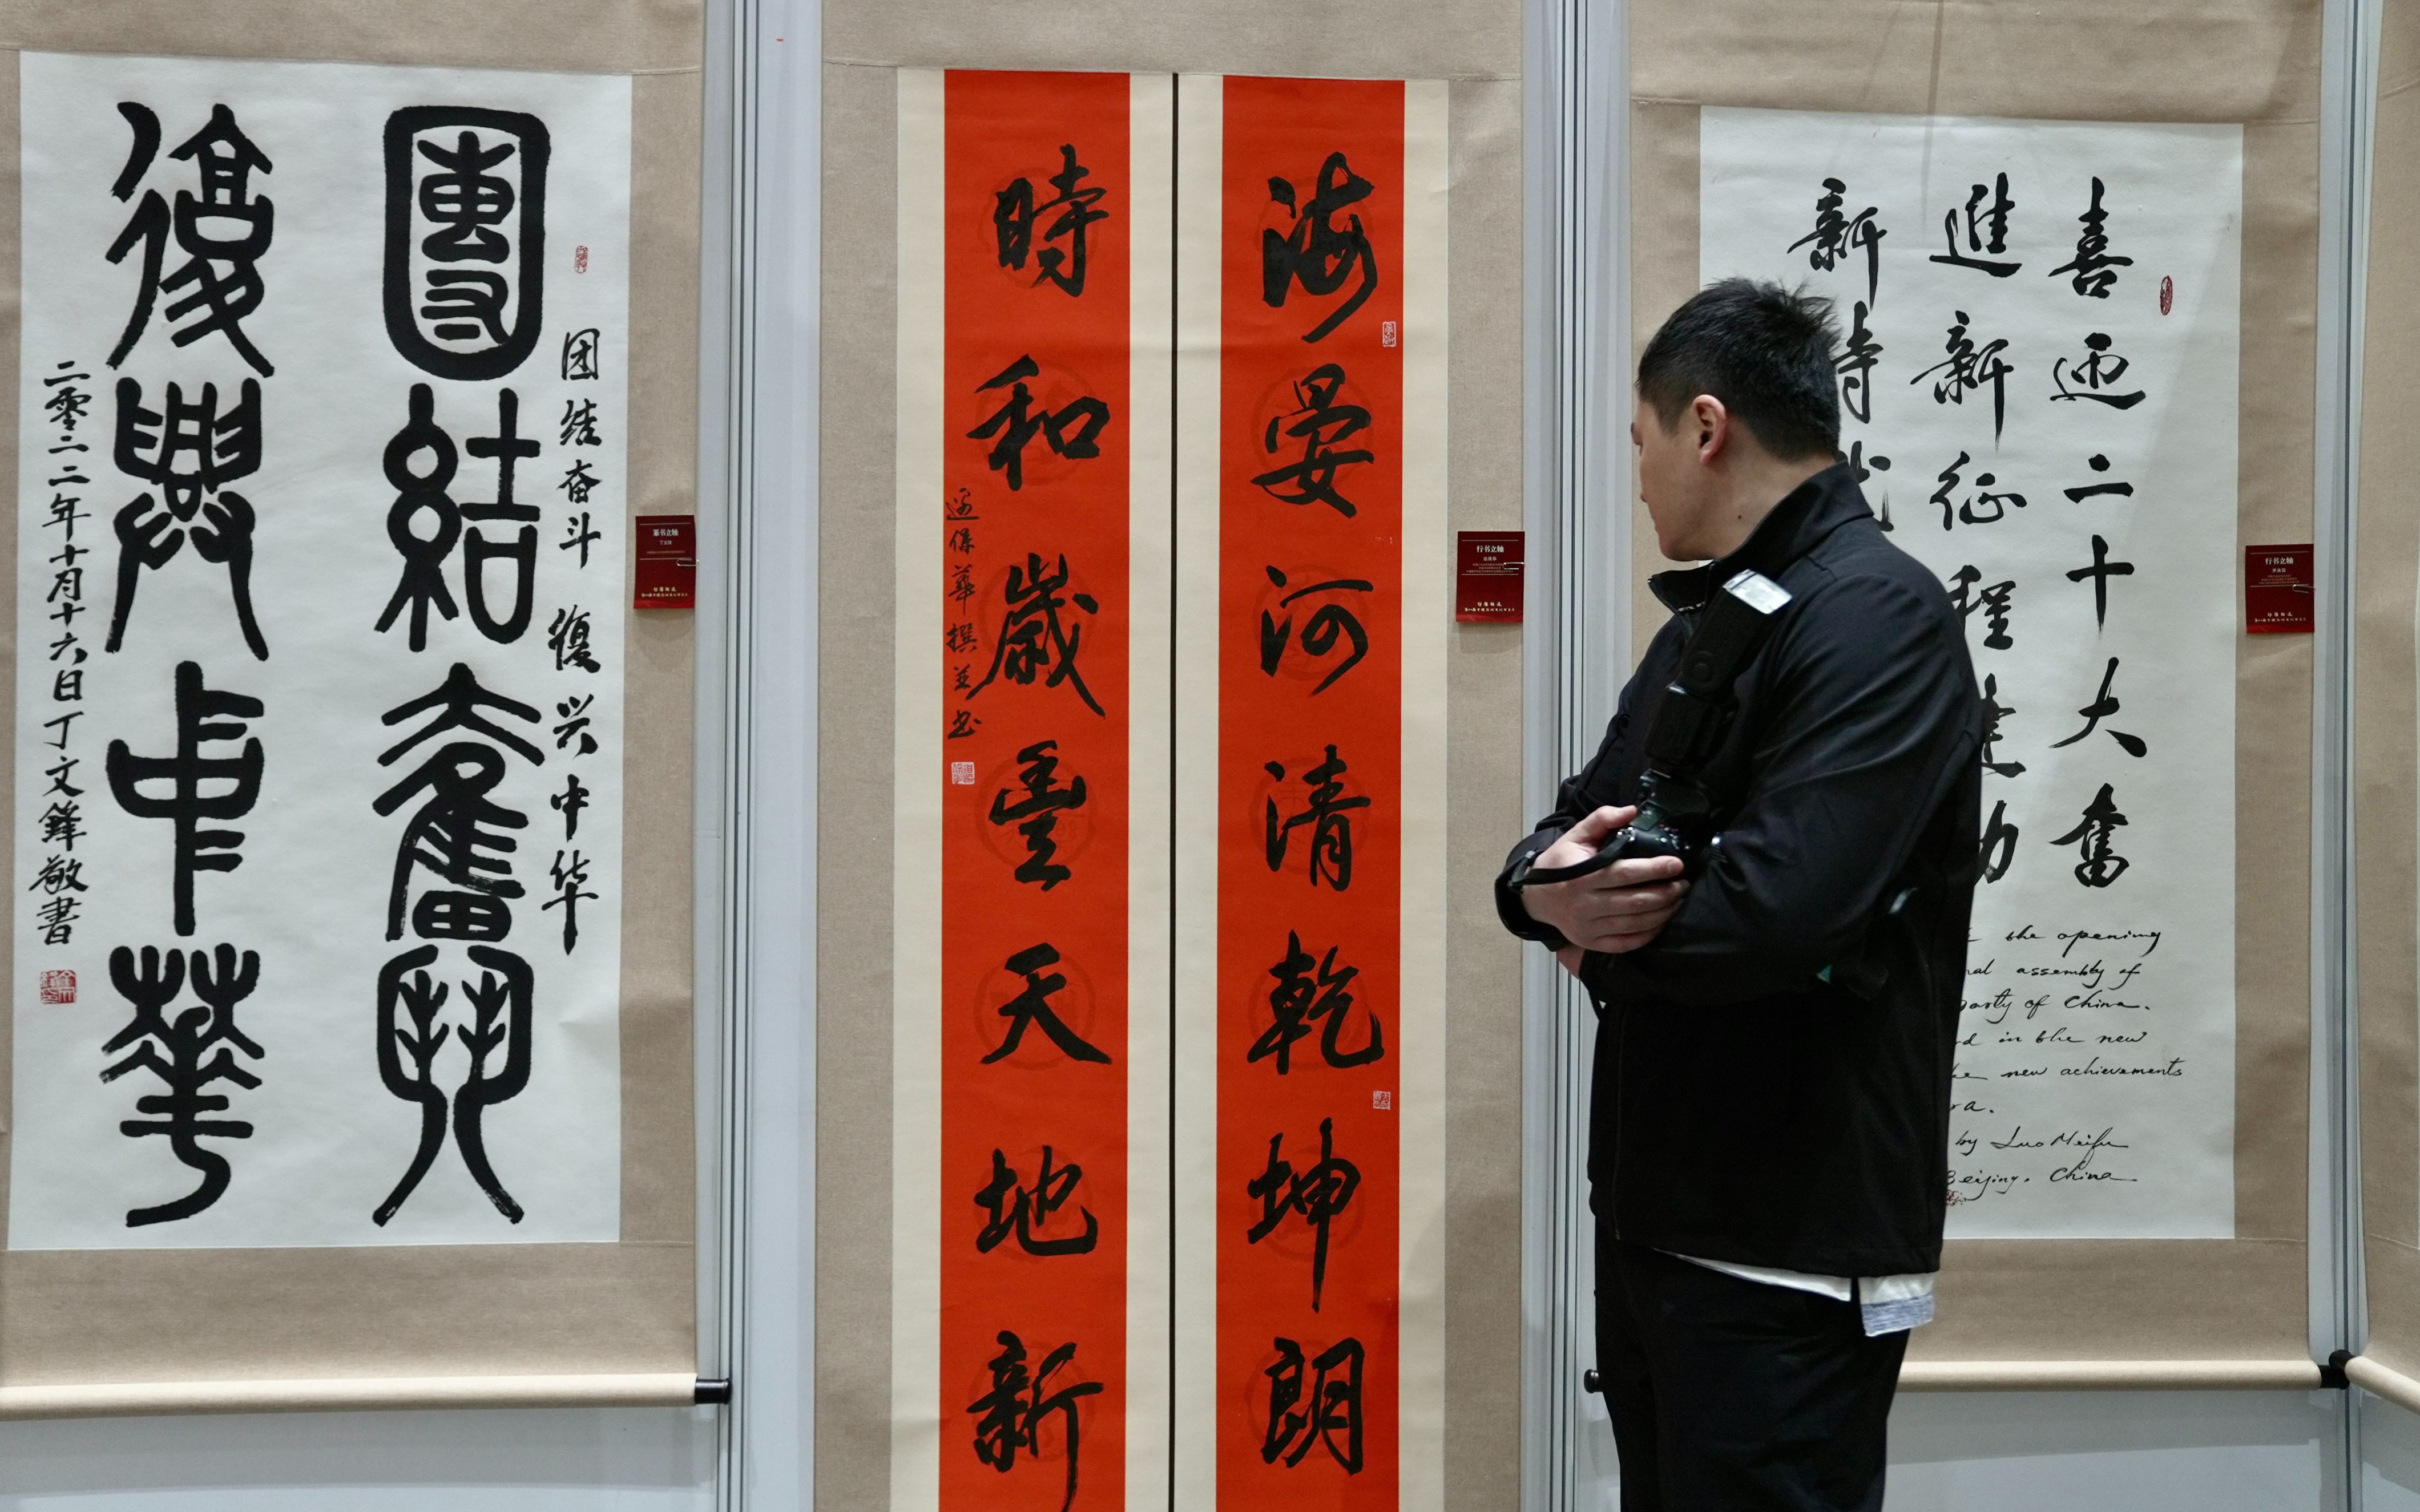 团结奋斗 復兴中华
團結奮鬥
復興中華
二零二二年十月十六日丁文鋒敬書
篆书立轴
海晏河清乾坤朗
時和歲豐天地新
保華撰並书
行书立轴
喜迎二十大奮
進新征程建功
新時代
the opening
assembly of
party of China.
in the new
new achievements
by Luo Meifu
Beijing. China
行书立轴